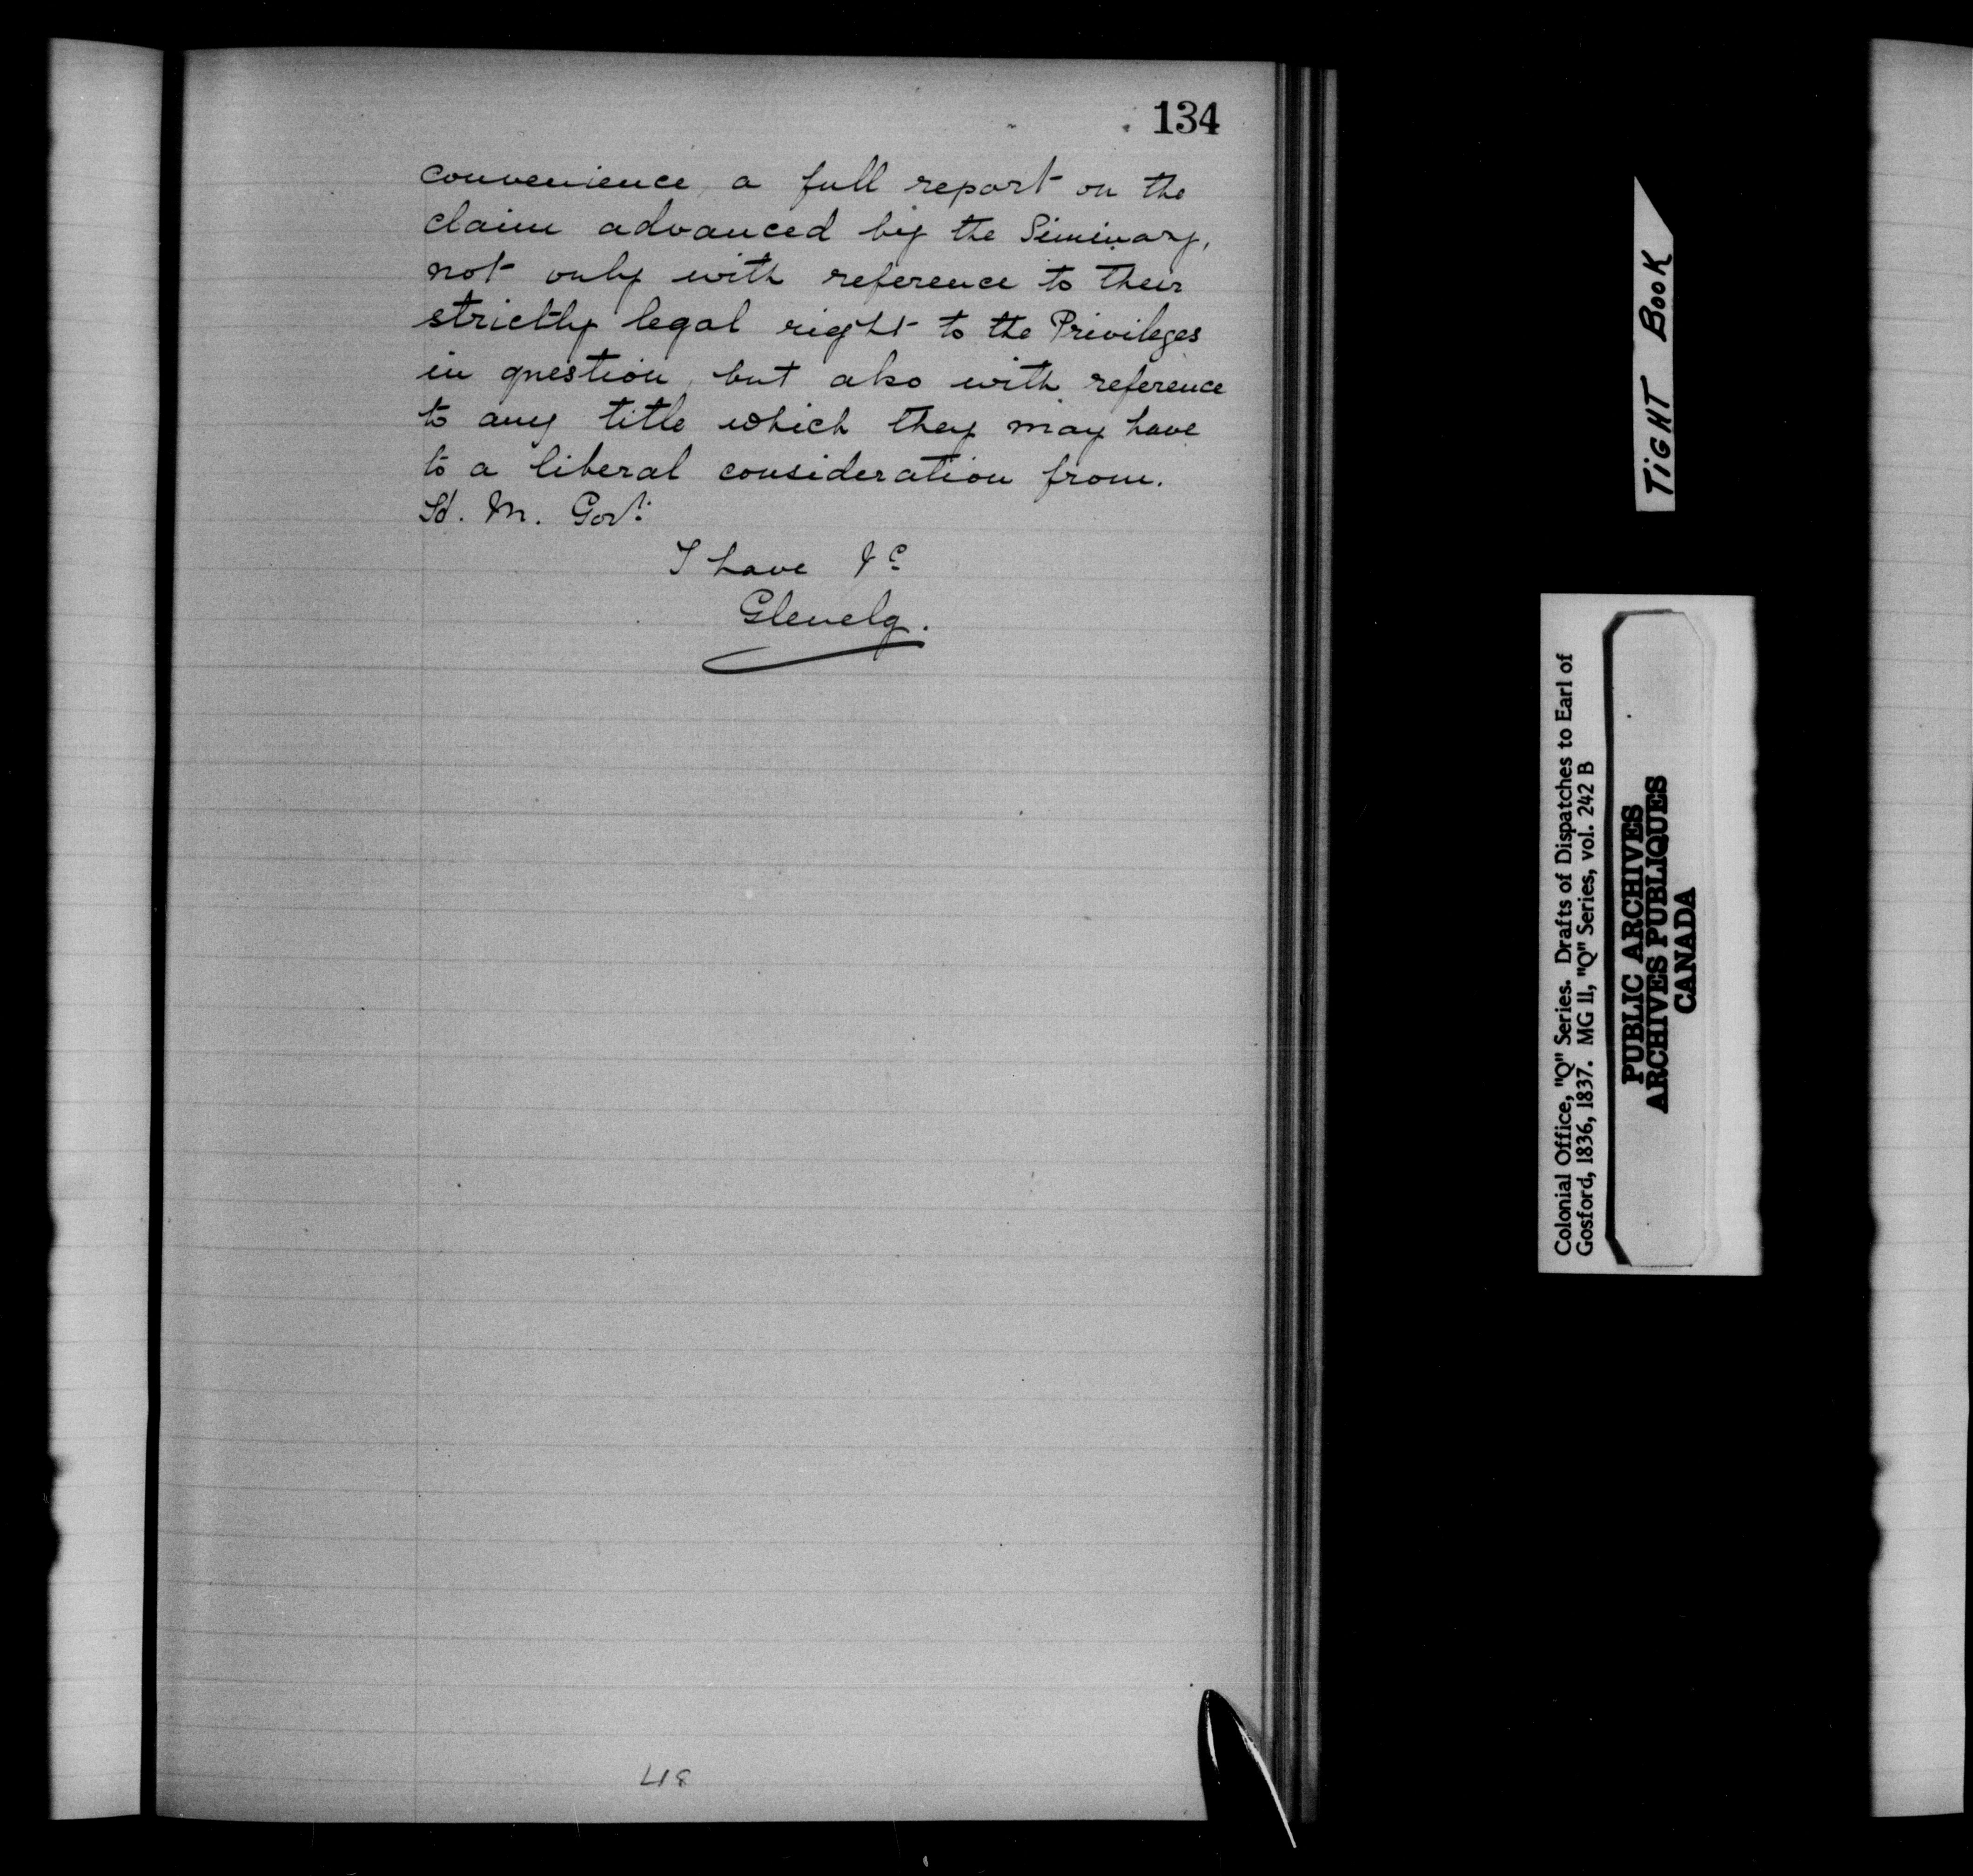 134
convenience, a full report on the
claim advanced by the Siminary,
not only with reference to their
strictly legal right to the Privileges
in question, but also with reference
to any title which they may have
to a liberal consideration from.
M. Govt:
I have &c
Glenelg.
418
TIGHT BOOK
Colonial Office, "Q" Series. Drafts of Dispatches to Earl of
Gosford, 1836, 1837. MG 11, "Q" Series, vol. 242 B
PUBLIC ARCHIVES
ARCHIVES PUBLIQUES
CANADA